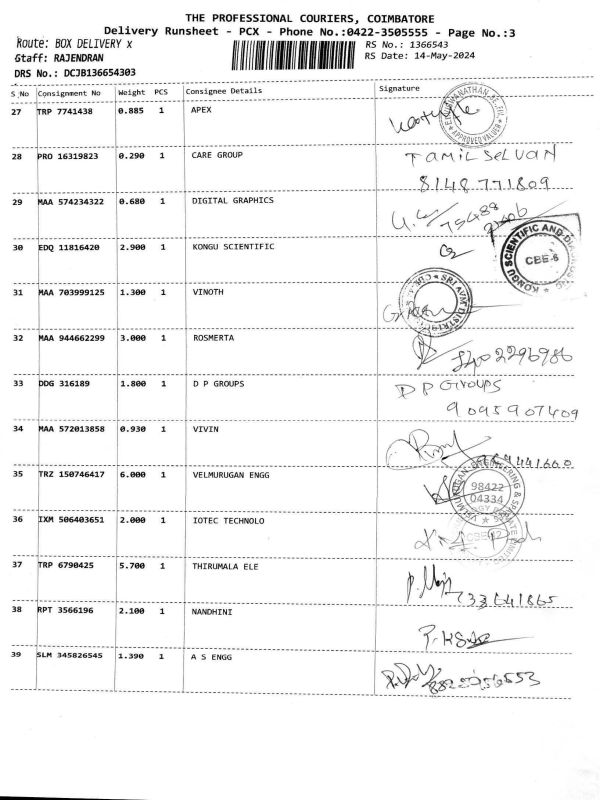 THE PROFESSIONAL COURIERS, COIMBATORE
Delivery Runsheet - PCX - Phone No.:0422-3505555 - Page No.:3
Route: BOX DELIVERY x
RS No.: 1366543
Staff: RAJENDRAN
RS Date: 14-May-2024
DRS No.: DCJB136654303
S_No Consignment No Weight PCS Consignee Details Signature
27 TRP 7741438 0.885 1 APEX
APPROVED VALUER
28 PRO 16319823 0.290 1 CARE GROUP TAMIL SELVAN
8148771809
29 MAA 574234322 0.680 1 DIGITAL GRAPHICS
30 EDQ 11816420 2.900 1 KONGU SCIENTIFIC
KONGU SCIENTIFIC AND
CBE-6
31 MAA 703999125 1.300 1 VINOTH
32 MAA 944662299 3.000 1 ROSMERTA
33 DDG 316189 1.800 1 D P GROUPS DP Groups
9095907409
34 MAA 572013858 0.930 1 VIVIN
35 TRZ 150746417 6.000 1 VELMURUGAN ENGG
98422
04334
36 IXM 506403651 2.000 1 IOTEC TECHNOLO
37 TRP 6790425 5.700 1 THIRUMALA ELE
38 RPT 3566196 2.100 1 NANDHINI
39 SLM 345826545 1.390 1 A S ENGG